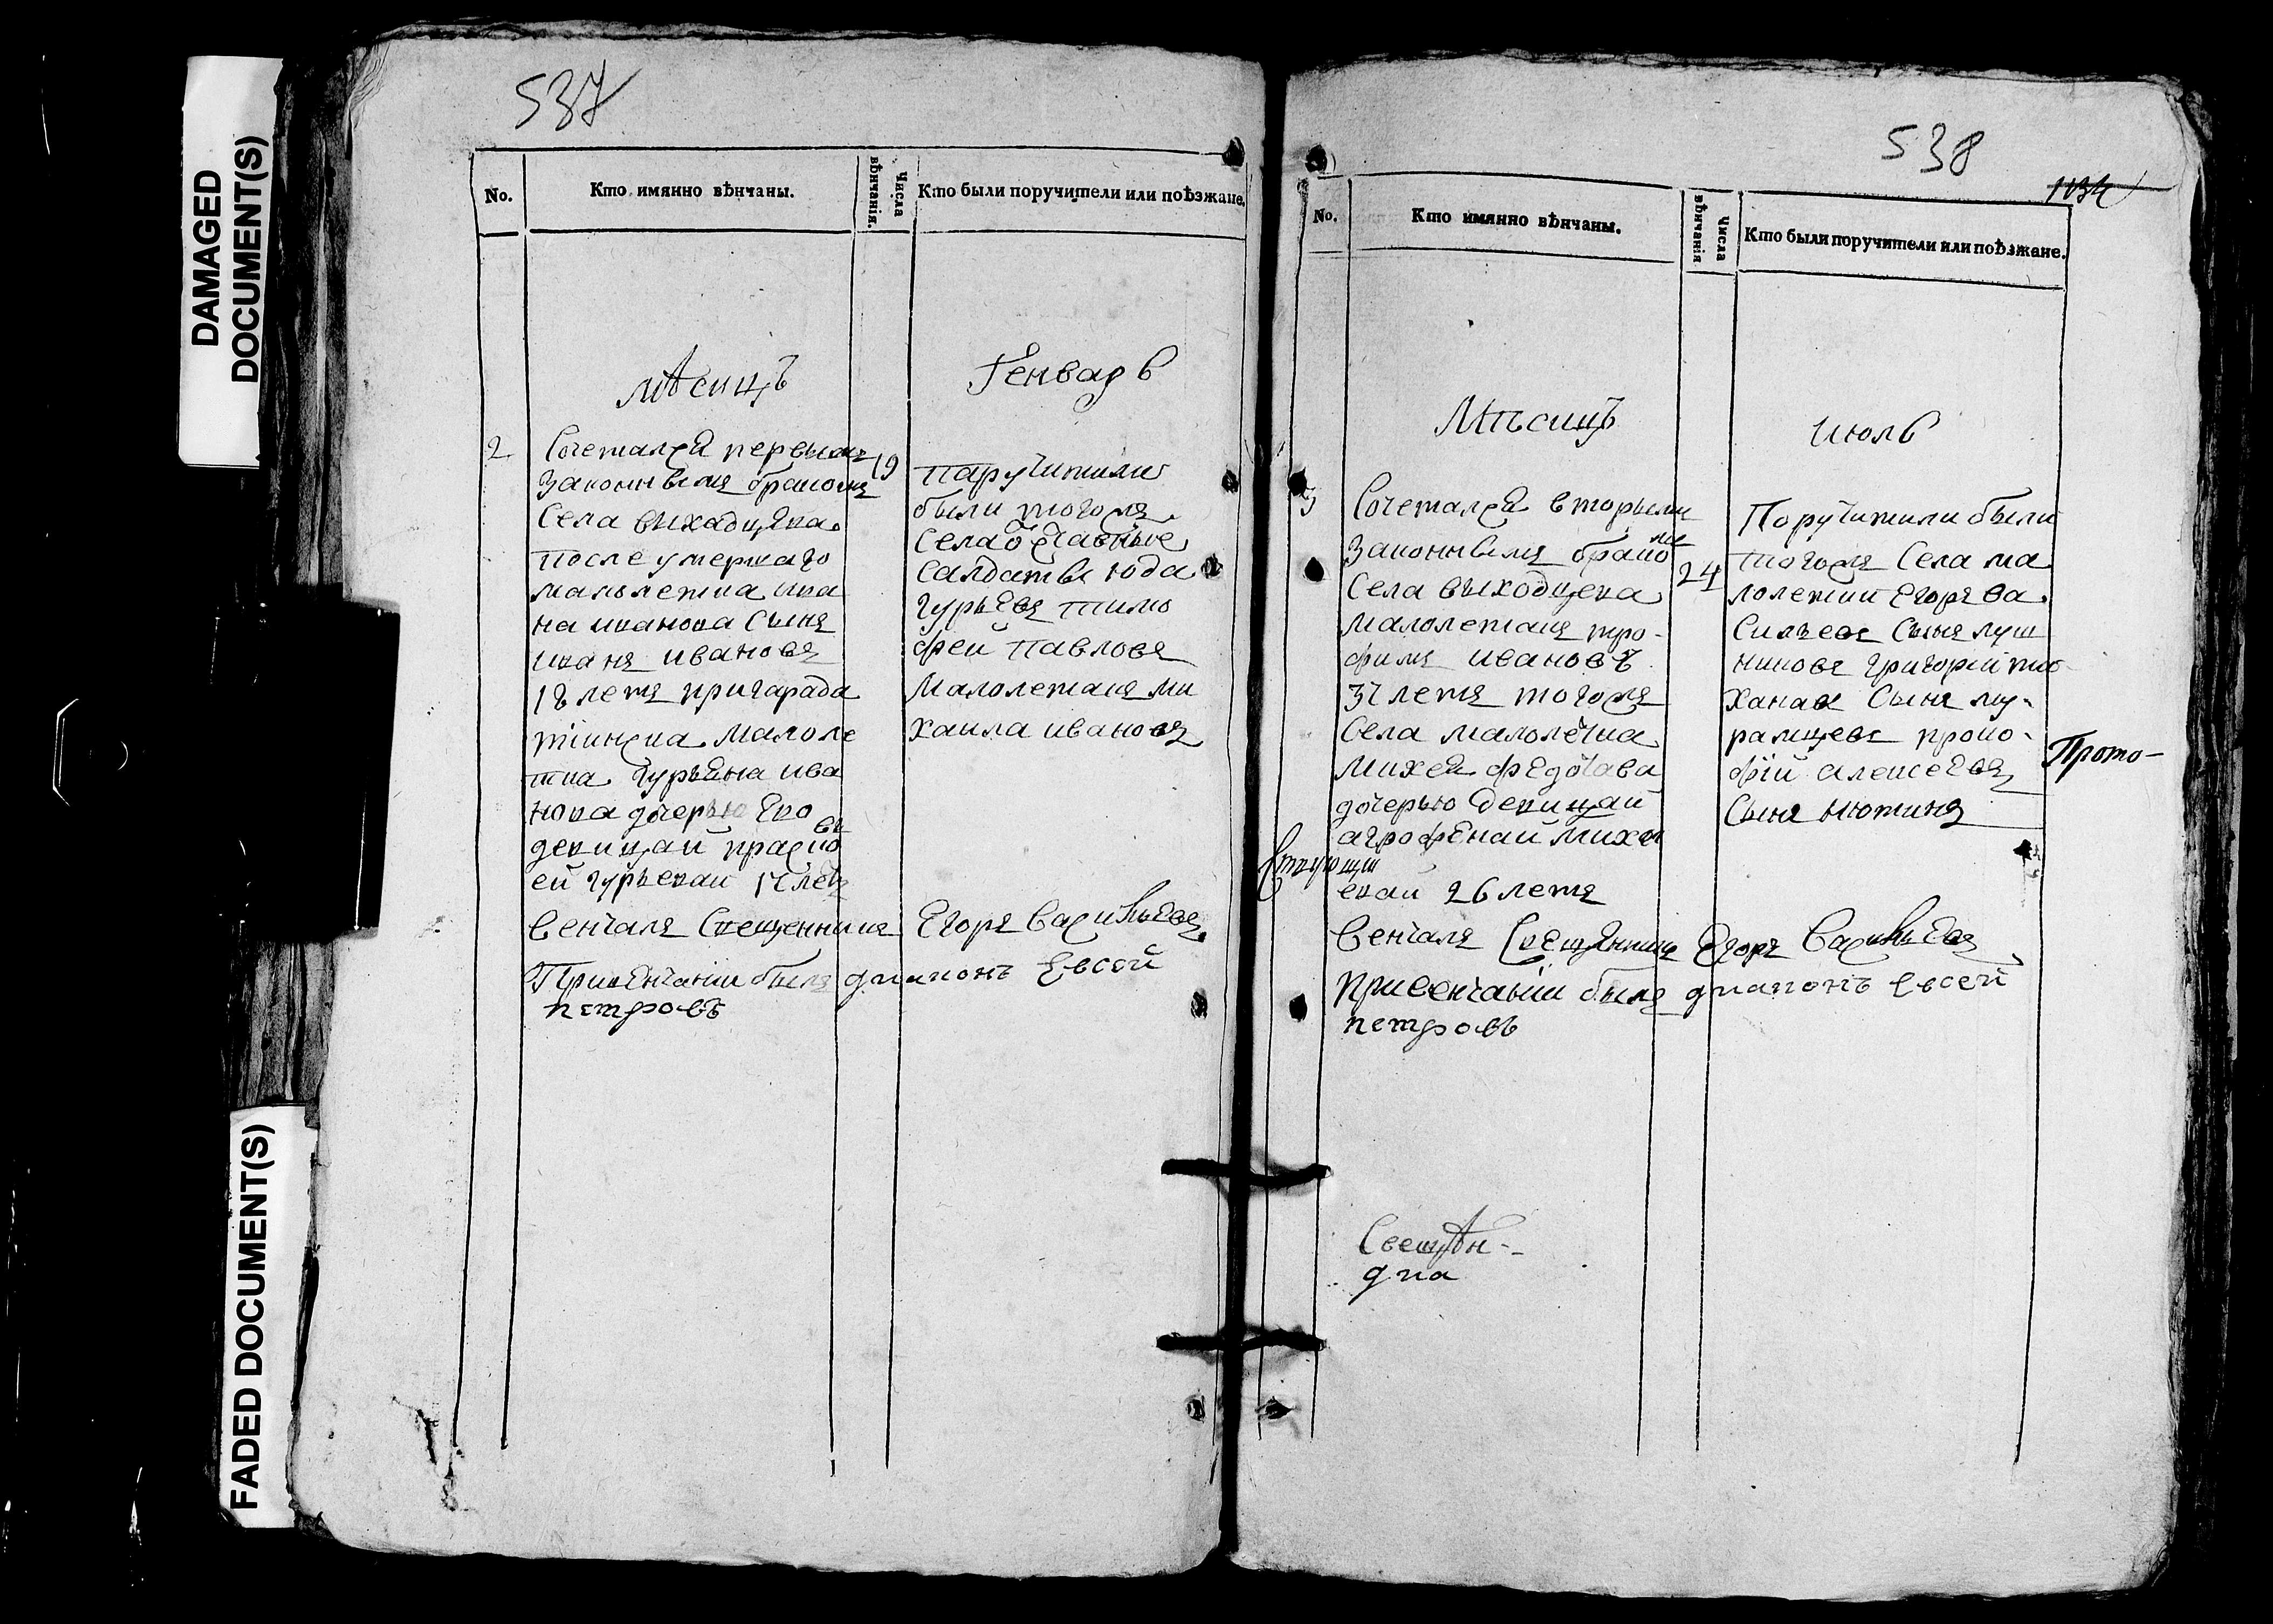 DAMAGED
DOCUMENT(S)
FADED DOCUMENT(S)
537
No.
Кто имянно вѣнчаны.
Числа
вѣнчанія.
Кто были поручители или поѣзжане.
мѣсицъ
Генварь
2
Сочеталса первымъ
19
законнымъ бракомъ
села выхадцэва
после умершаго
малолетка ива
на иванова сынъ
иванъ ивановъ
18 летъ пригарада
тіинска малоле
тка гурьяна ива
нова дочерью Ево
девицай прасков
ей гурьевай 17 летъ
паручители
были тогожъ
села
салдатъ юда
гурьевъ тимо
фей павловъ
малолеткаъ ми
хаила ивановъ
Венчалъ Свещенникъ Егоръ Васильевъ
Привенчании былъ дьяконъ Евсей
петровъ
538
1134
No.
Кто имянно вѣнчаны.
Числа
вѣнчанія
Кто были поручители или поѣзжане.
Мѣсицъ
июль
3
Сочеталса вторымъ
законнымъ бракомъ
24
села выходцева
малолетакъ тро-
фимъ ивановъ
37 летъ тогожъ
села малолетка
михея федотава
дочерью девицай
агрофенай михе
евай 26 летъ
Поручители были
тогожъ села ма
лолетки Егоръ ва
сильевъ сынъ луш
никовъ григорий
сынъ му-
рамцевъ проко-
фій алексеевъ
сынъ мютинъ
Прото-
Венчалъ Свещэнникъ Егоръ Васильевъ
привенчании былъ дьяконъ Евсей
петровъ
Свещэн-
дка